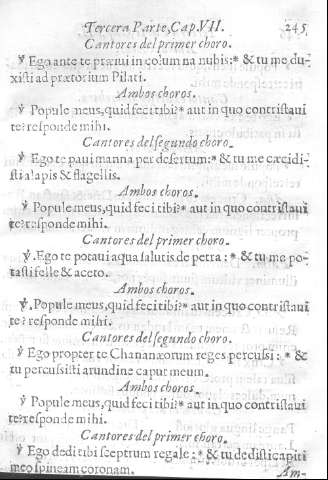 Tercera Parte, Cap. VII. 245
Cantores del primer choro.
℣ Ego ante te præiui in colum na nubis: * & tu me du-
xisti ad prætorium Pilati.
Ambos choros.
℣ Popule meus, quid feci tibi? * aut in quo contristaui
te? responde mihi.
Cantores del segundo choro.
℣ Ego te paui manna per desertum: * & tu me cæcidi-
sti alapis & flagellis.
Ambos choros.
℣ Popule meus, quid feci tibi? * aut in quo contristaui
te? responde mihi.
Cantores del primer choro.
℣. Ego te potaui aqua salutis de petra: * & tu me po-
tasti felle & aceto.
Ambos choros.
℣. Popule meus, quid feci tibi? * aut in quo contristaui
te? responde mihi.
Cantores del segundo choro.
℣ Ego propter te Chananæorum reges percussi: * &
tu percussisti arundine caput meum.
Ambos choros.
℣ Popule meus, quid feci tibi? * aut in quo contristaui
te? responde mihi.
Cantores del primer choro.
℣ Ego dedi tibi sceptrum regale: * & tu dedisti capiti
meo spineam coronam. Am-